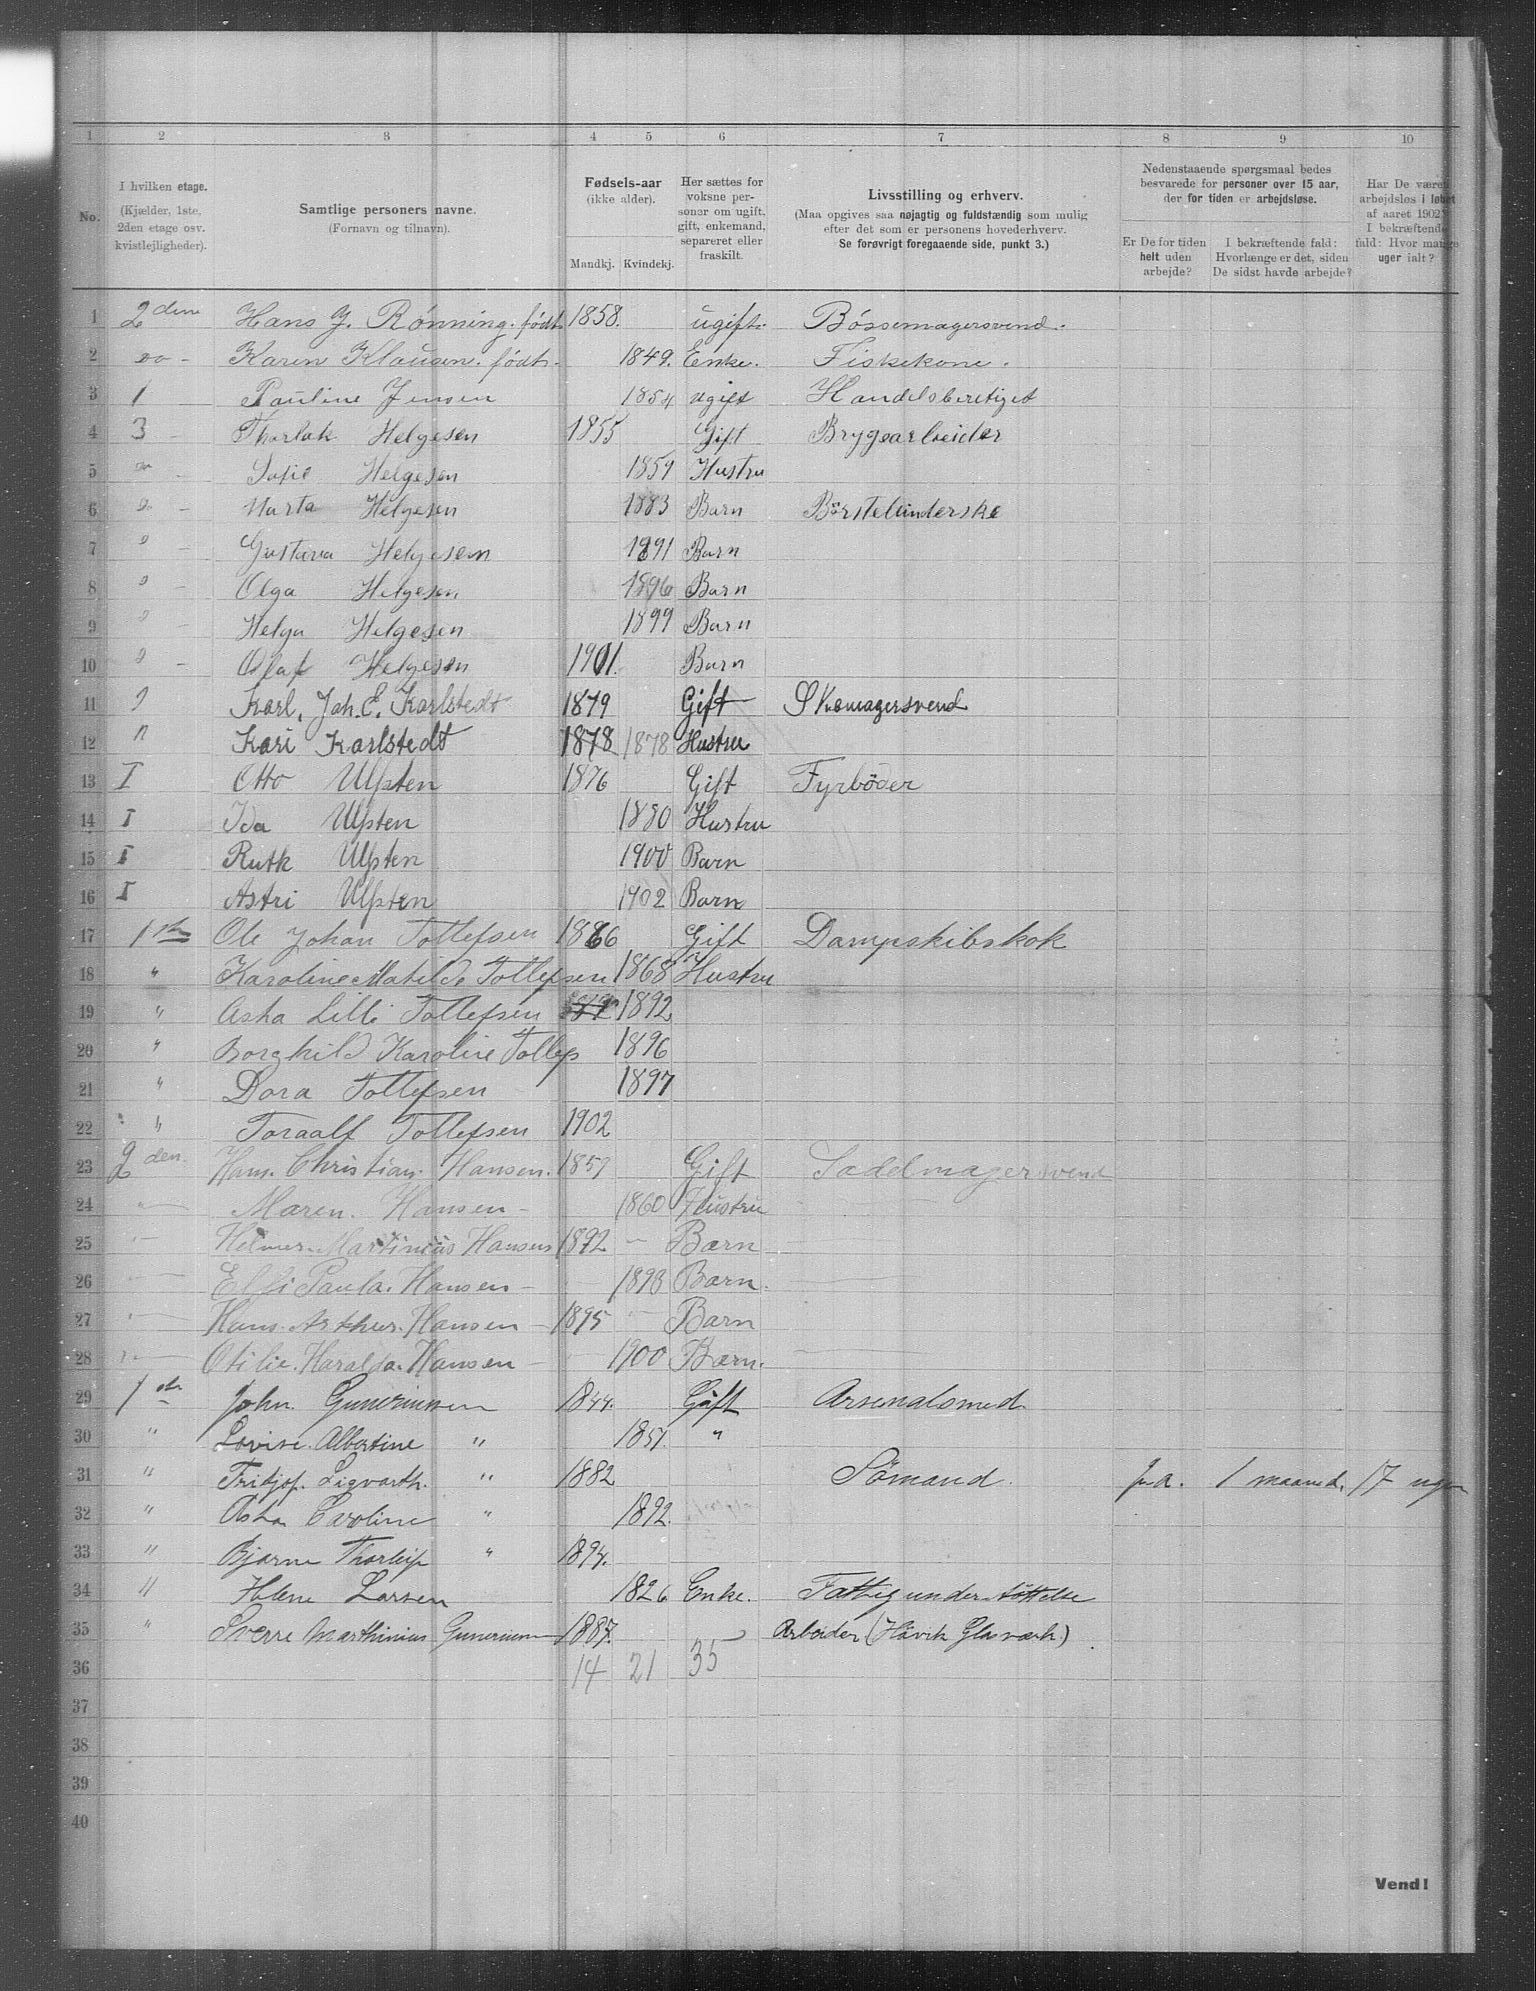 1 2 3 4 5 6 7 8 9 10
No.
I hvilken etage.
(Kjælder, 1ste,
2den etage osv.
kvistlejligheder).
Samtlige personers navne.
(Fornavn og tilnavn).
Fødsels-aar
(ikke alder).
Mandkj. Kvindekj.
Her sættes for
voksne per-
soner om ugift,
gift, enkemand,
separeret eller
fraskilt.
Livsstilling og erhverv.
(Maa opgives saa nøjagtig og fuldstændig som mulig
efter det som er personens hovederhverv.
Se forøvrigt foregaaende side, punkt 3.)
Nedenstaaende spørgsmaal bedes
besvarede for personer over 15 aar,
der for tiden er arbejdsløse.
Er De for tiden
helt uden
arbejde?
I bekræftende fald:
Hvorlænge er det, siden
De sidst havde arbejde?
Har De været
arbejdsløs i løbet
af aaret 1902?
I bekræftende
fald: Hvor mange
uger ialt?
1 2den Hans J. Rønning. født 1858. ugift. Bössemagersvend.
2 do - Karen Klausen. født. 1849. Enke. Fiskekone.
3 1 Pauline Jensen 1854 ugift Handelsberetiget
4 3 - Thorlak Helgesen 1855 Gift Brygearbeider
5 do - Sofie Helgesen 1859 Hustru
6 do - Marta Helgesen 1883 Barn Börstebinderske
7 " - Gustava Helgesen 1891 Barn
8 " - Olga Helgesen 1896 Barn
9 " - Helga Helgesen 1899 Barn
10 " - Olaf Helgesen 1901. Barn
11 " Karl. Joh. E. Karlstedt 1879 Gift Skomagersvend
12 " Kari Karlstedt 1878 1878 Hustru
13 I Otto Ulsten 1876 Gift Fyrböder
14 I Ida Ulsten 1880 Hustru
15 I Ruth Ulsten 1900 Barn
16 I Astri Ulsten 1902 Barn
17 1ste Ole Johan Tollefsen 1866 Gift Dampskibskok
18 " Karoline Matilde Tollefsen 1868 Hustru
19 " Asta Lilli Tollefsen 1892
20 " Borghild Karoline Tollefs 1896
21 " Dora Tollefsen 1897
22 " Toraalf Tollefsen 1902
23 2den. Hans. Christian. Hansen. 1857 Gift Sadelmagersvend
24 " Maren. Hansen - 1860 Hustru
25 " Helmer. Martinius Hansen 1892 - Barn
26 " Elfi Paula. Hansen - 1893 Barn.
27 " Hans. Arthur. Hansen - 1895 - Barn
28 " Otilie. Haralda. Hansen - 1900 Barn.
29 1ste John. Guneriussen 1844. Gift Arsenalsmed
30 " Lovise. Albertine " 1851. "
31 " Fritjof. Sigvarth. " 1882 Sömand. ja. 1 maaned. 17 uger
32 " Asta Caroline " 1892.
33 " Bjarne Thorleif " 1894.
34 " Helene Larsen 1826 Enke. Fattigunderstöttelse
35 " Sverre Marthinius Gunerius 1887. Arbeider (Hövik Glasværk.)
36 14 21 35
37
38
39
40
Vend!